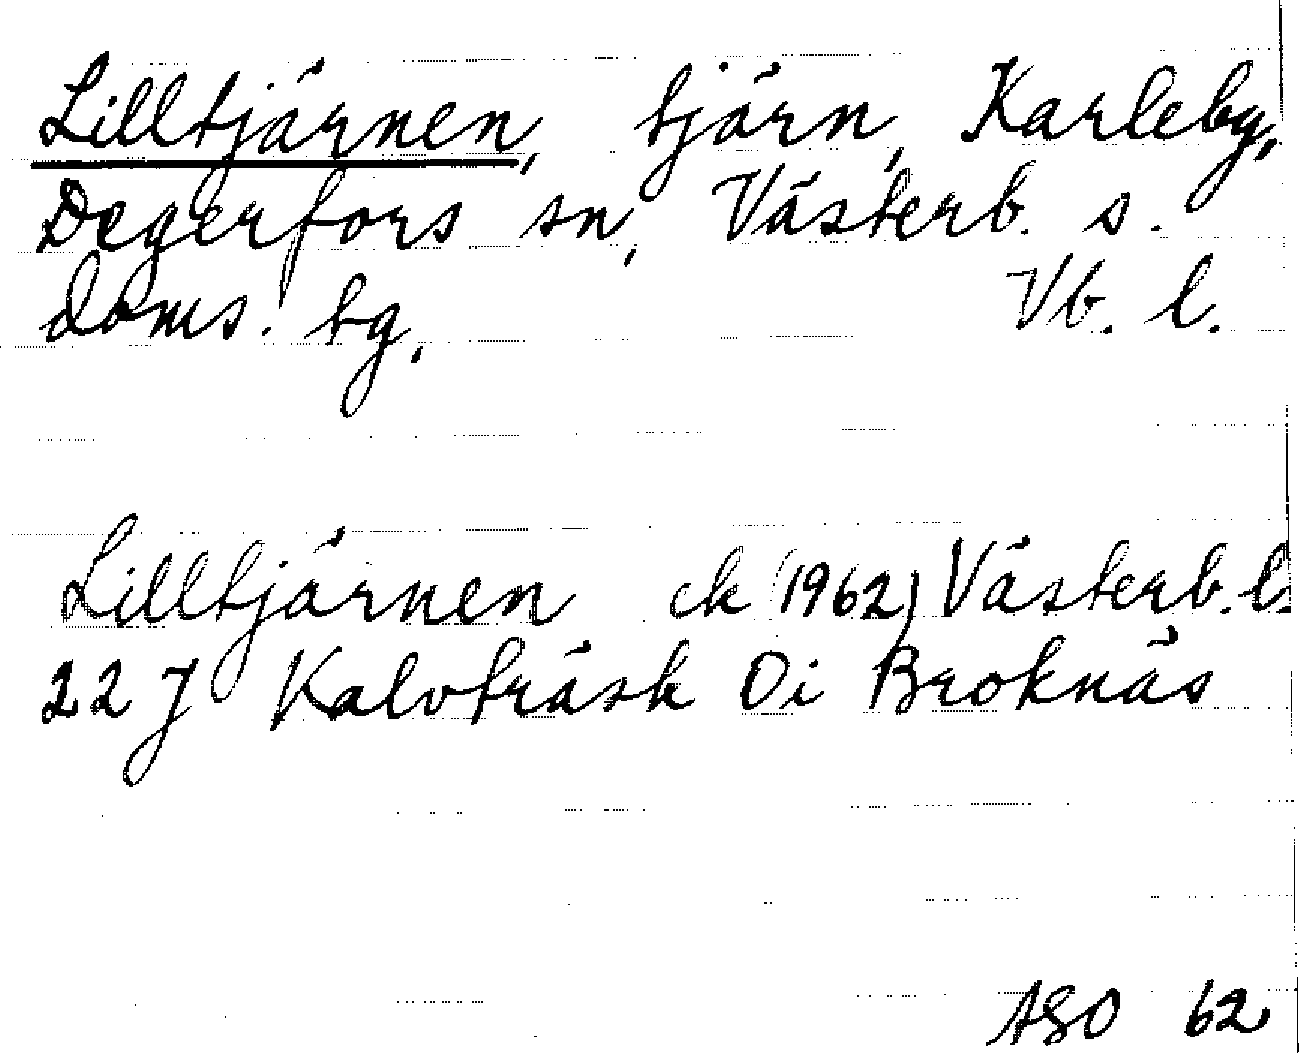 Lilltjärnen, tjärn, Karleby,
Degerfors sn, Västerb. s.
doms. tg, Vb. l.
Lilltjärnen ek (1962) Västerb. l.
22 J Kalvträsk Oi Broknäs
ASO 62